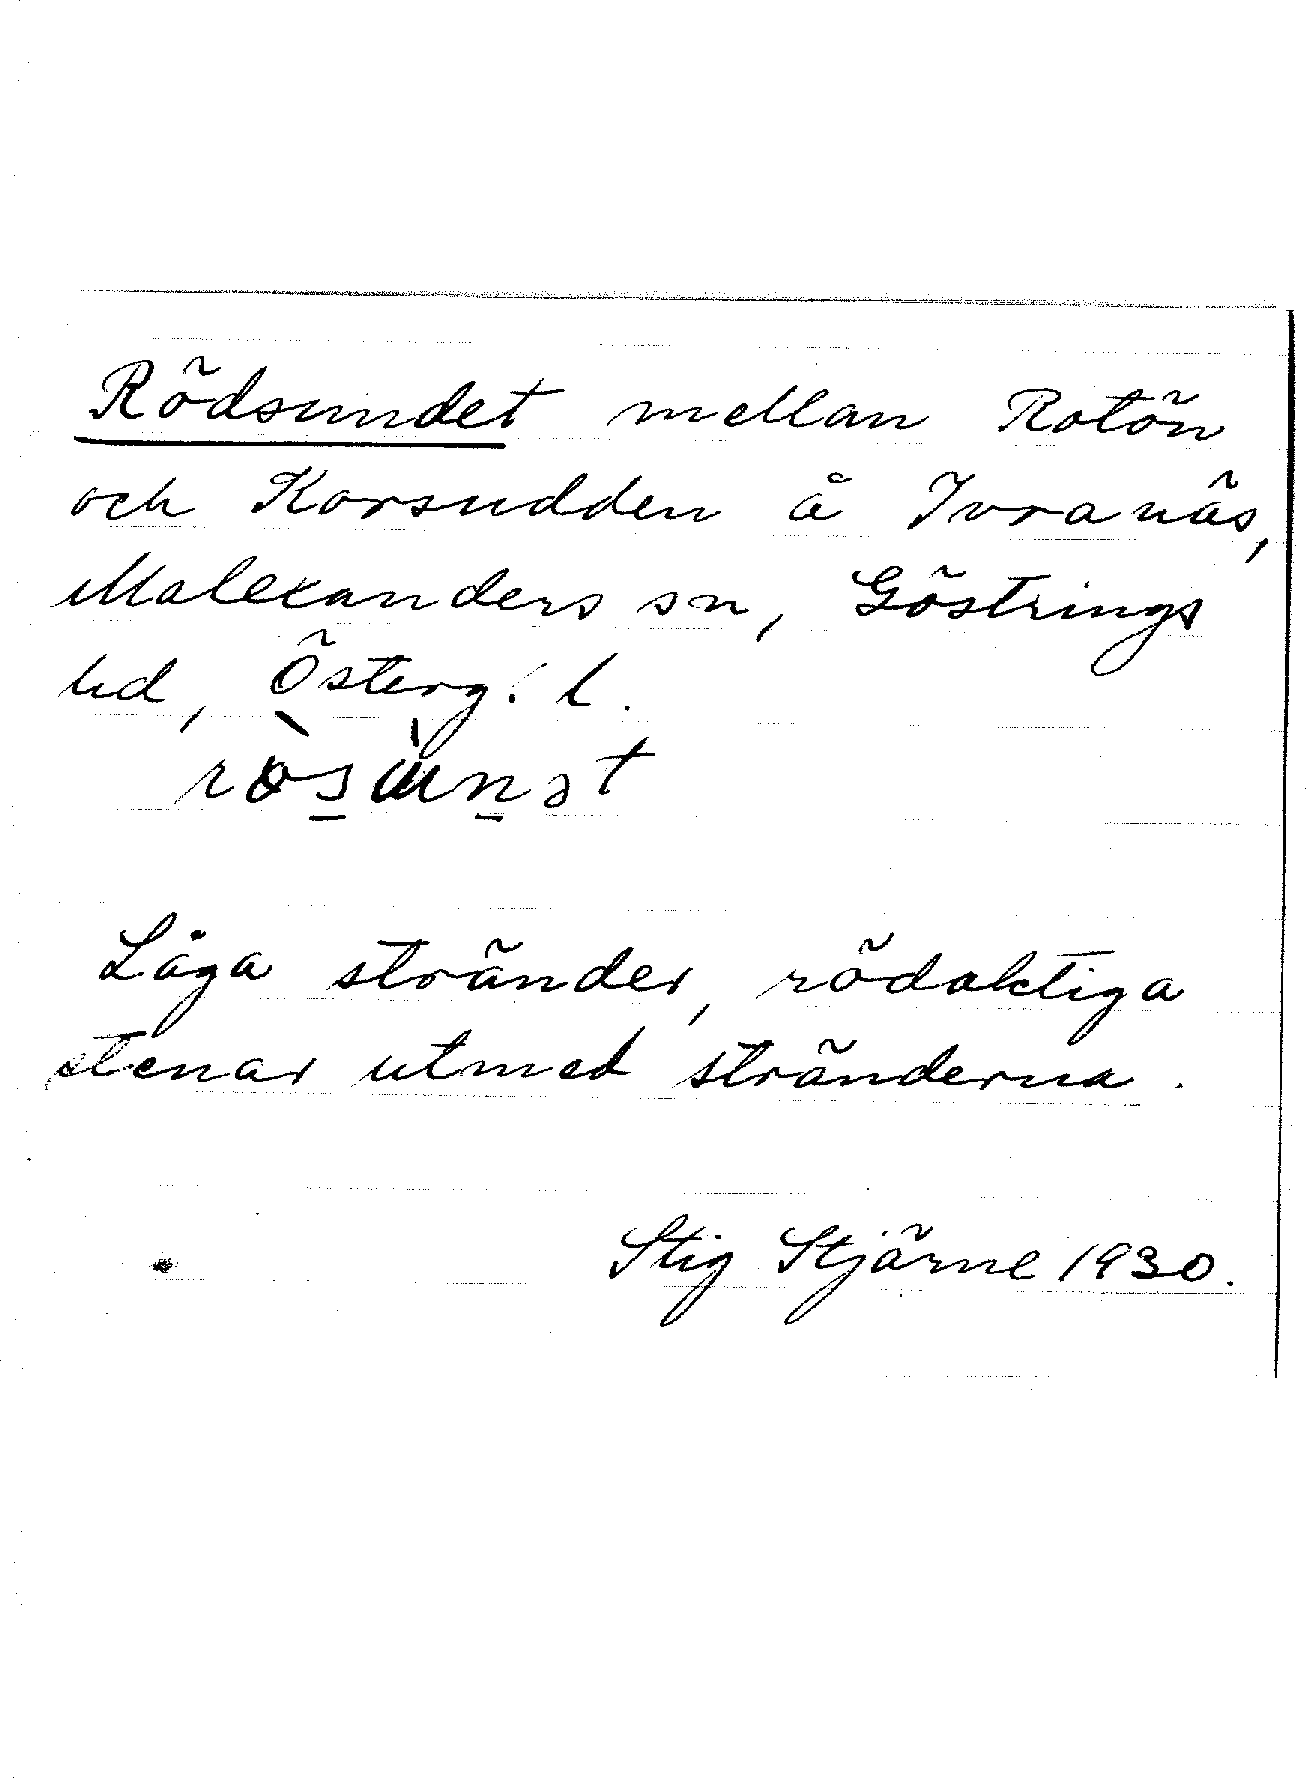 Rödsundet mellan Rotön
och Korsudden å Ivranäs,
Malexanders sn, Göstrings
hd, Österg. l.
Låga stränder, rödaktiga
stenar utmed stränderna.
Stig Stjärne 1930.